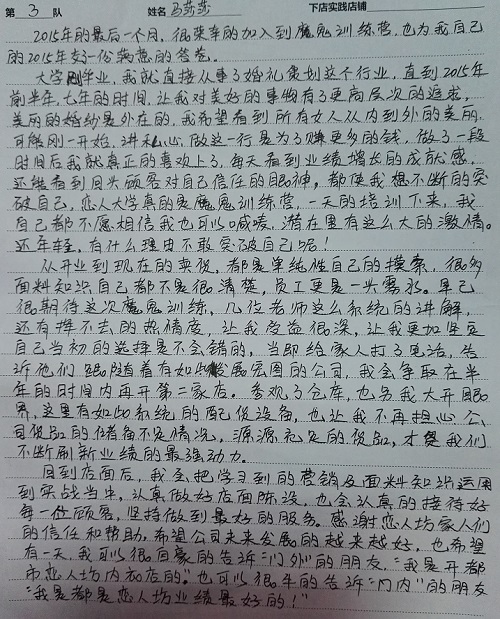 第 3 队 姓名 马莎莎 下店实践店铺
2015年的最后一个月，很荣幸的加入到魔鬼训练营，也为我自己
的2015年交一份满意的答卷。
大学刚毕业，我就直接从事了婚礼策划这个行业，直到2015年
前半年，七年的时间，让我对美好的事物有了更高层次的追求，
美丽的婚纱是外在的，我希望看到所有女人从内到外的美丽。
可能刚一开始，讲私心做这一行是为了赚更多的钱，做了一段
时间后我就真正的喜欢上了，每天看到业绩增长的成就感，
还能看到回头顾客对自己信任的眼神，都使我想不断的突
破自己，恋人大学真的是魔鬼训练营，一天的培训下来，我
自己都不愿相信我也可以呐喊，潜在里有这么大的激情。
还年轻，有什么理由不敢突破自己呢！
从开业到现在的卖货，都是单纯性自己的摸索，很多
面料知识自己都不是很清楚，员工更是一头雾水。早已
很期待这次魔鬼训练，几位老师这么系统的讲解，
还有挥不去的热情度，让我受益很深，让我更加坚定
自己当初的选择是不会错的，当即给家人打了电话，告
诉他们跟随着有如此发展宏图的公司，我会争取在半
年的时间内再开第二家店。参观了仓库，也另我大开眼
界，这里有如此系统的配货设备，也让我不再担心公
司货品的储备不足情况，源源充足的货品，才是我们
不断刷新业绩的最强动力。
回到店面后，我会把学习到的营销及面料知识运用
到实战当中，认真做好店面陈设，也会认真的接待好
每一位顾客，坚持做到最好的服务。感谢恋人坊家人们
的信任和帮助，希望公司未来发展的越来越好，也希望
有一天，我可以很自豪的告诉“门外”的朋友，“我是开都
市恋人坊内衣店的”。也可以很牛的告诉“门内”的朋友
“我是都是恋人坊业绩最好的！”